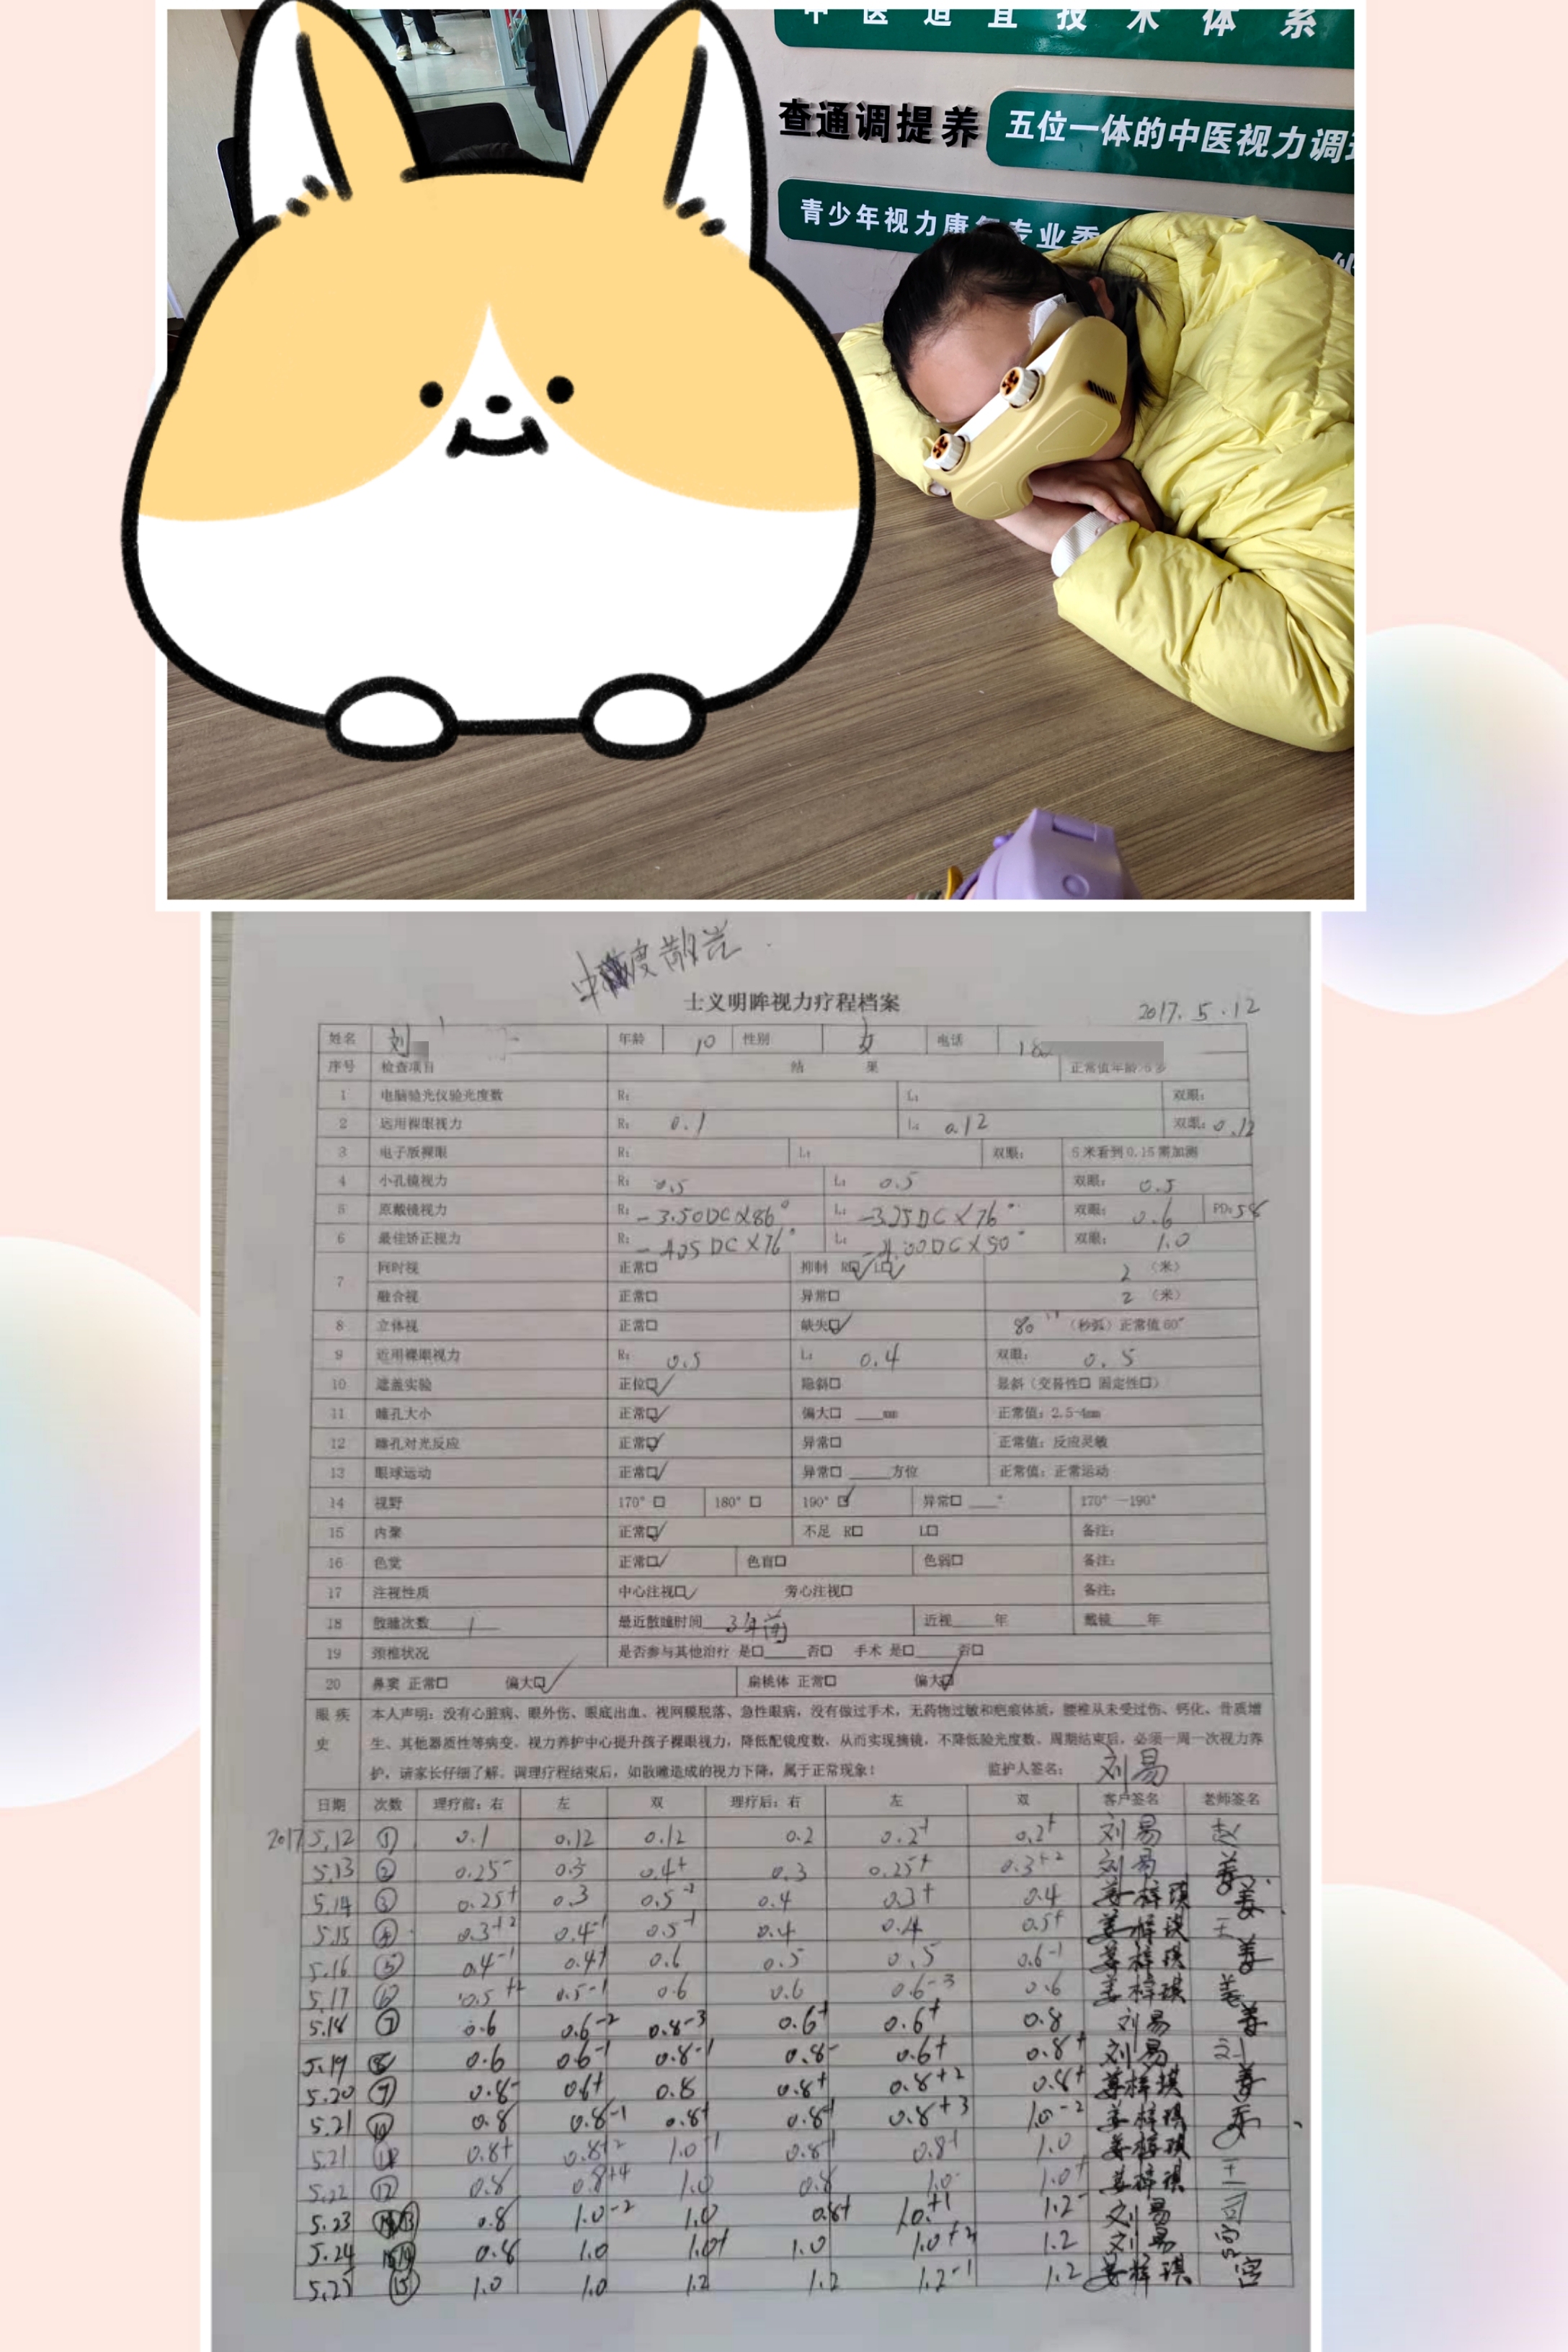 中医适宜技术体系
查通调提养 五位一体的中医视力调
青少年视力康复专业委
中度散光
士义明眸视力疗程档案
2017.5.12
姓名 刘 年龄 10 性别 女 电话 18
序号 检查项目 结果 正常值年龄:6岁
1 电脑验光仪验光度数 R: L: 双眼:
2 远用裸眼视力 R: 0.1 L: 0.12 双眼: 0.12
3 电子版裸眼 R: L: 双眼: 5米看到0.15需加测
4 小孔镜视力 R: 0.5 L: 0.5 双眼: 0.5
5 原戴镜视力 R: -3.50DC×86° L: -3.25DC×76° 双眼: 0.6 PD:58
6 最佳矫正视力 R: -4.25DC×76° L: -4.00DC×90° 双眼: 1.0
7 同时视 正常□ 抑制 R☑ L☑ 2 (米)
融合视 正常□ 异常□ 2 (米)
8 立体视 正常□ 缺失☑ 80" (秒弧)正常值60"
9 近用裸眼视力 R: 0.5 L: 0.4 双眼: 0.5
10 遮盖实验 正位☑ 隐斜□ 显斜(交替性□ 固定性□)
11 瞳孔大小 正常☑ 偏大□ ___mm 正常值:2.5-4mm
12 瞳孔对光反应 正常☑ 异常□ 正常值:反应灵敏
13 眼球运动 正常☑ 异常□ ____方位 正常值:正常运动
14 视野 170°□ 180°□ 190°☑ 异常□ ___° 170°—190°
15 内聚 正常☑ 不足 R□ L□ 备注:
16 色觉 正常☑ 色盲□ 色弱□ 备注:
17 注视性质 中心注视☑ 旁心注视□ 备注:
18 散瞳次数 1 最近散瞳时间 3年前 近视____年 戴镜____年
19 颈椎状况 是否参与其他治疗 是□____否□ 手术 是□____否□
20 鼻窦 正常□ 偏大☑ 扁桃体 正常□ 偏大☑
眼疾史 本人声明:没有心脏病、眼外伤、眼底出血、视网膜脱落、急性眼病,没有做过手术,无药物过敏和疤痕体质,腰椎从未受过伤、钙化、骨质增
生、其他器质性等病变。视力养护中心提升孩子裸眼视力,降低配镜度数,从而实现摘镜,不降低验光度数。周期结束后,必须一周一次视力养
护,请家长仔细了解。调理疗程结束后,如散瞳造成的视力下降,属于正常现象! 监护人签名: 刘易
日期 次数 理疗前:右 左 双 理疗后:右 左 双 客户签名 老师签名
2017 5.12 ① 0.1 0.12 0.12 0.2 0.2+ 0.2+ 刘易 赵
5.13 ② 0.25- 0.3 0.4+ 0.3 0.25+ 0.3+2 刘易 姜
5.14 ③ 0.25+ 0.3 0.5-1 0.4 0.3+ 0.4 姜梓琪 姜
5.15 ④ 0.3+2 0.4-1 0.5-1 0.4 0.4 0.5+ 姜梓琪 王
5.16 ⑤ 0.4-1 0.4+ 0.6 0.5 0.5 0.6-1 姜梓琪 姜
5.17 ⑥ 0.5 0.5-1 0.6 0.6 0.6-3 0.6 姜梓琪 姜
5.18 ⑦ 0.6 0.6-2 0.8-3 0.6+ 0.6+ 0.8 刘易 姜
5.19 ⑧ 0.6 0.6-1 0.8-1 0.8- 0.6+ 0.8+ 刘易
5.20 0.8- 0.6+ 0.8 0.8+ 0.8+2 0.8+ 姜梓琪 姜
5.21 ⑩ 0.8 0.8-1 0.8+ 0.8+ 0.8+3 1.0-2 姜梓琪
5.21 0.8+ 0.8+2 1.0-1 0.8+ 0.8+ 1.0 姜梓琪
5.22 ⑫ 0.8 0.8+4 1.0 0.8 1.0- 1.0+ 姜梓琪 王
5.23 ⑬ 0.8 1.0-2 1.0 0.8+ 1.0+1 1.2- 刘易 司
5.24 ⑭ 0.8 1.0 1.0+ 1.0 1.0+2 1.2 刘易 宫
5.25 ⑮ 1.0 1.0 1.2 1.2 1.2-1 1.2 姜梓琪 宫